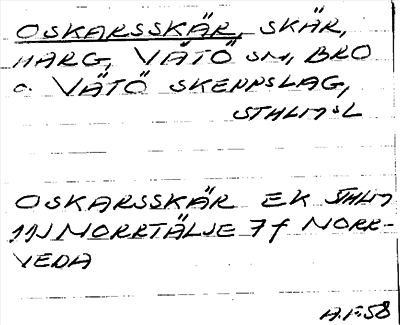 OSKARSSKÄR, SKÄR,
HARG, VÄTÖ SN, BRO
o. VÄTÖ SKEPPSLAG,
STHLMSL
OSKARSSKÄR EK STHLM
11J NORRTÄLJE 7f NORR-
VEDA
A.F. 58